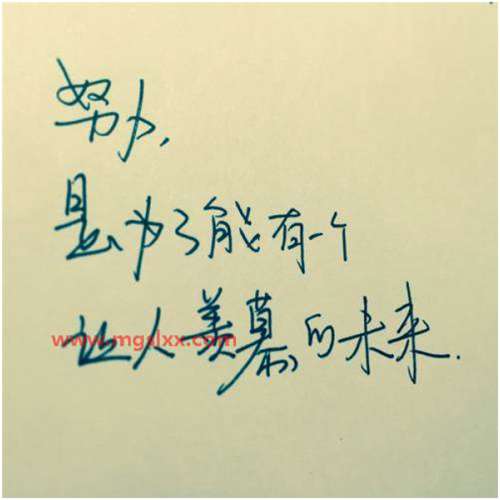 努力,
是为了能有一个
让人羡慕的未来.
www.mgslxx.com